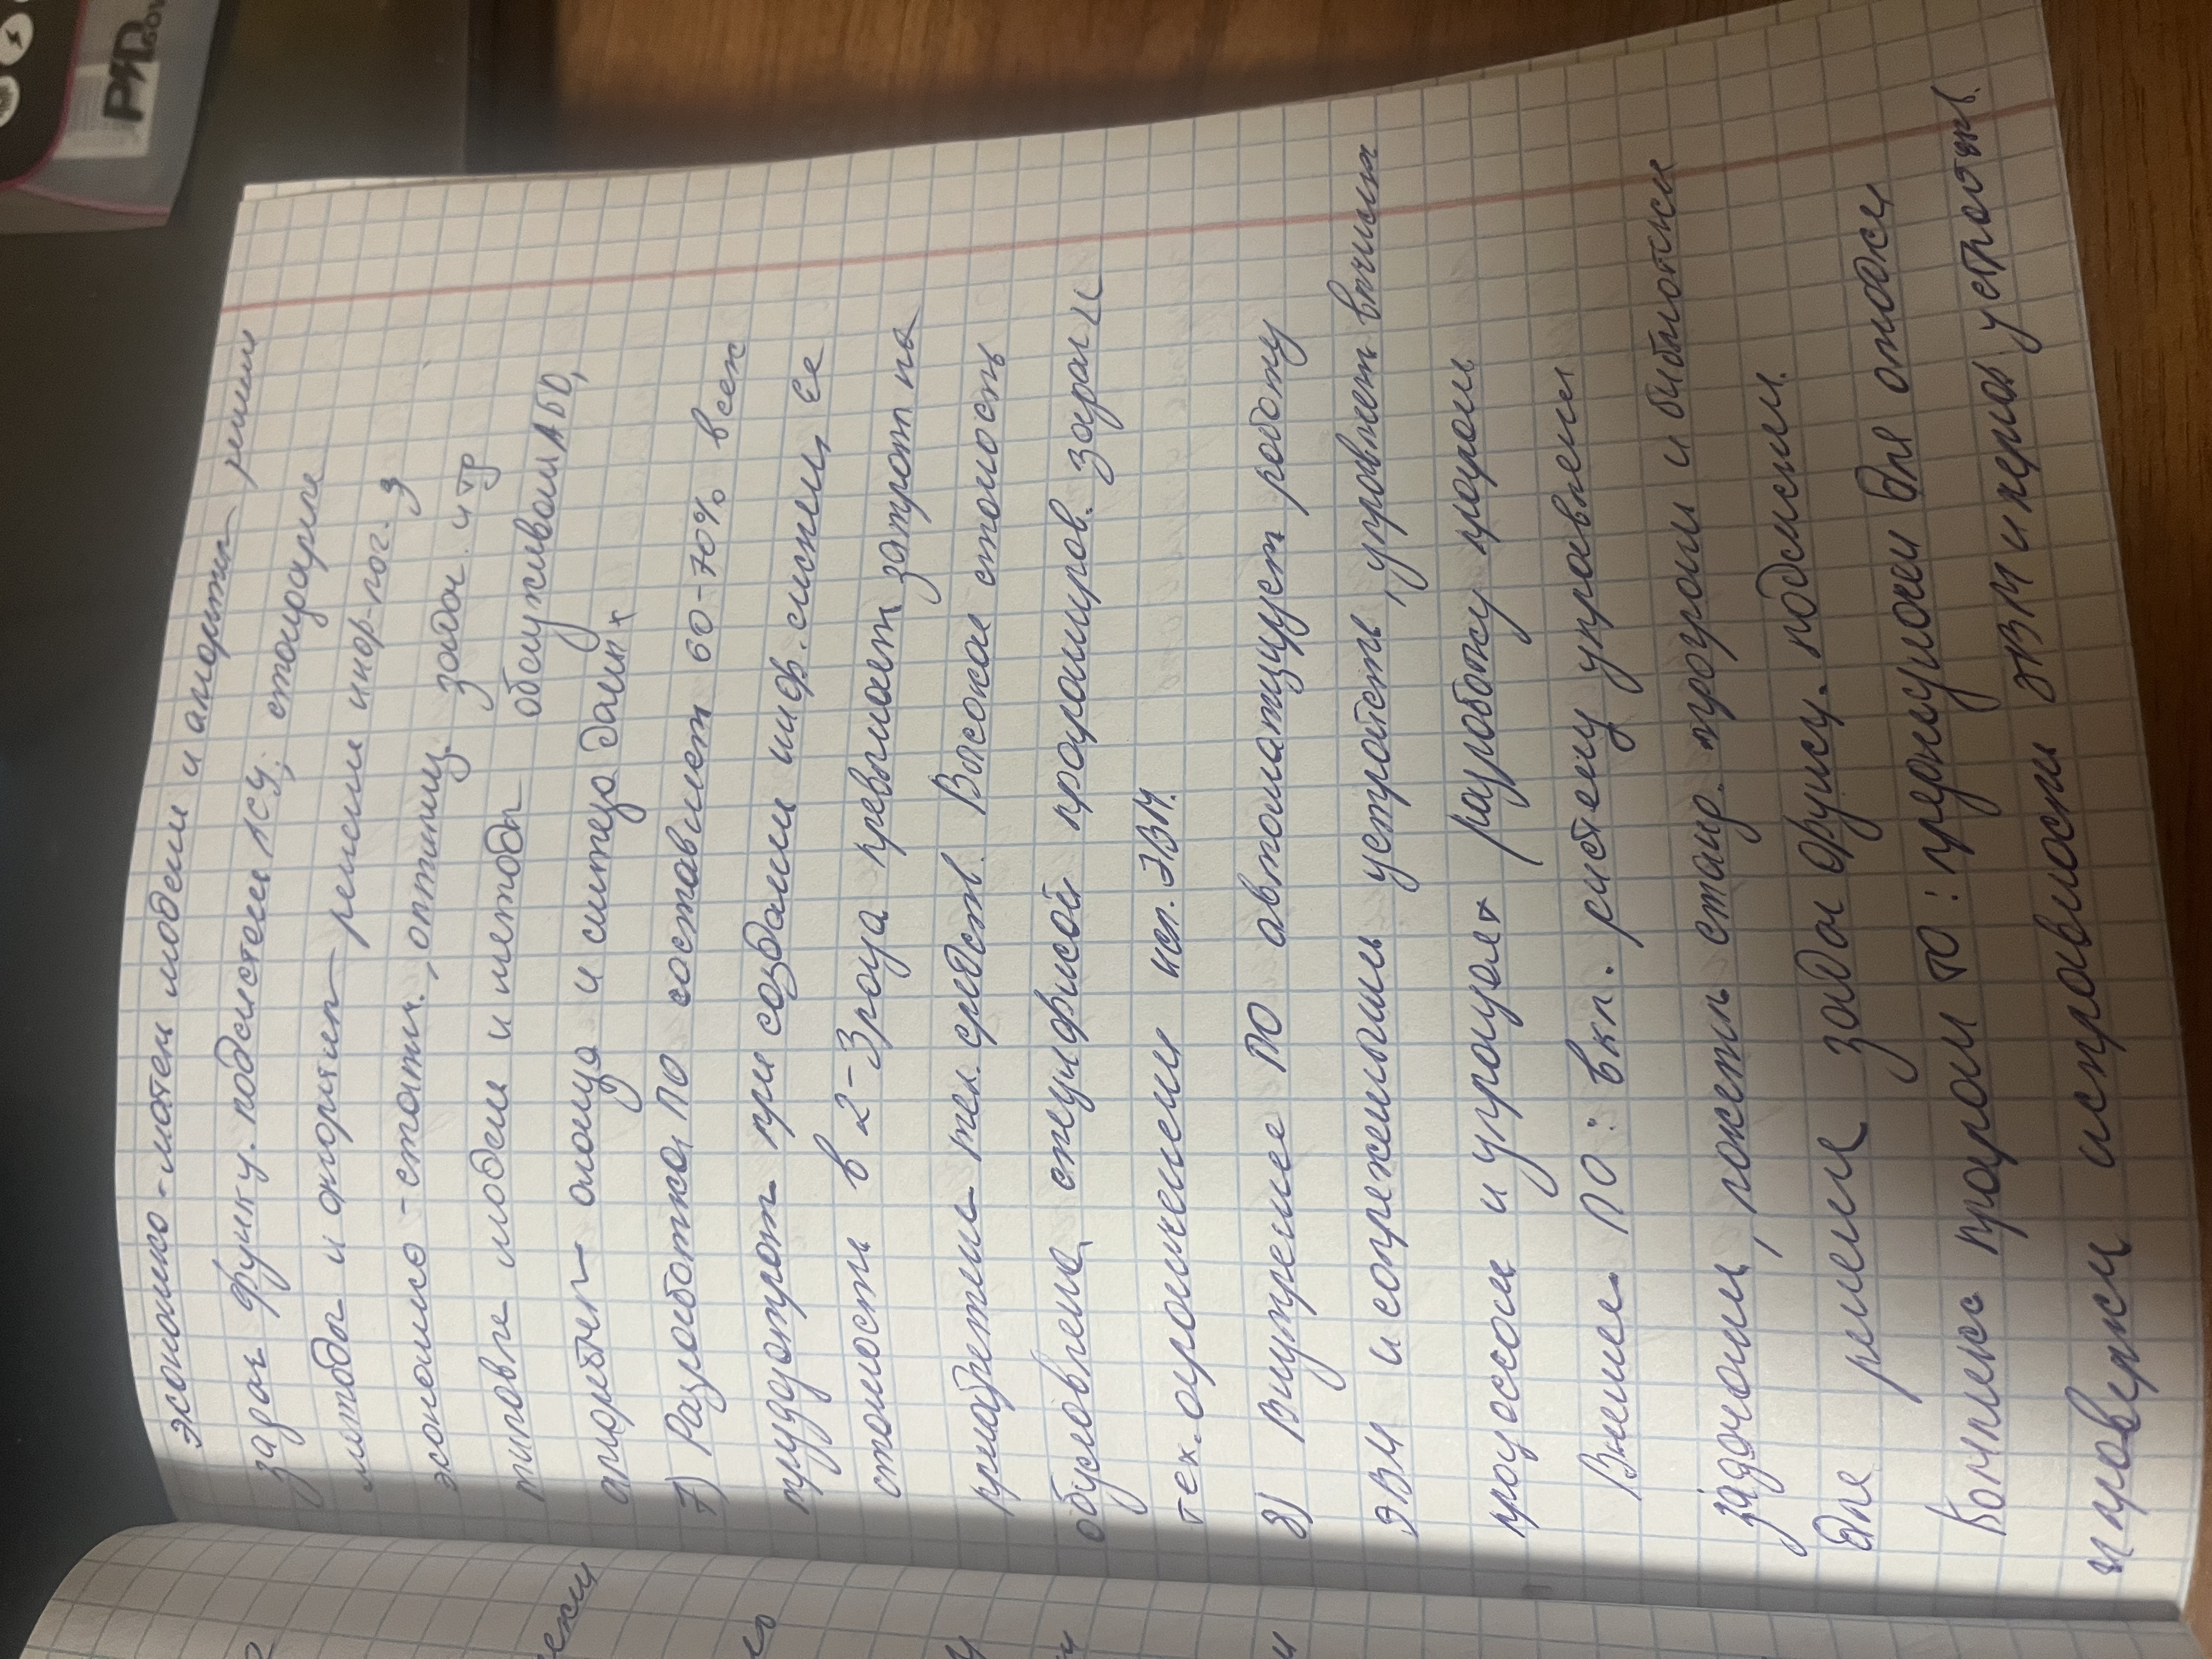 экономико-матем модели и алгоритм решени
задач функц. подсистем АСУ; стандартне
методы и алгоритмы решени инфор-лог. з
экономико-статист., оптимиз. задач и тр
типовые модели и методы обслуживани АБД,
алгоритмы анализа и синтеза данных
7) Разработка ПО составляет 60-70% всех
трудозатрат при создании инф. системы, ее
стоимость в 2-3 раза превышает затраты на
приобретение тех. средств. Высокая стоимость
обусловлена спецификой программиров. задач и
тех. ограничениями исп. ЭВМ.
8) Внутреннее ПО автоматизирует работу
ЭВМ и сопрежённых устройств, управляет вычисл
процессом и упрощает разработку програм
Внешнее ПО: вкл. систему управлени
задачами, пакеты станд. програм и библиотеки
для решени задач функц. подсистем.
Комплекс програм ТО: предназначен для отладки
и проверки исправности ЭВМ и периф устройств.
PRO